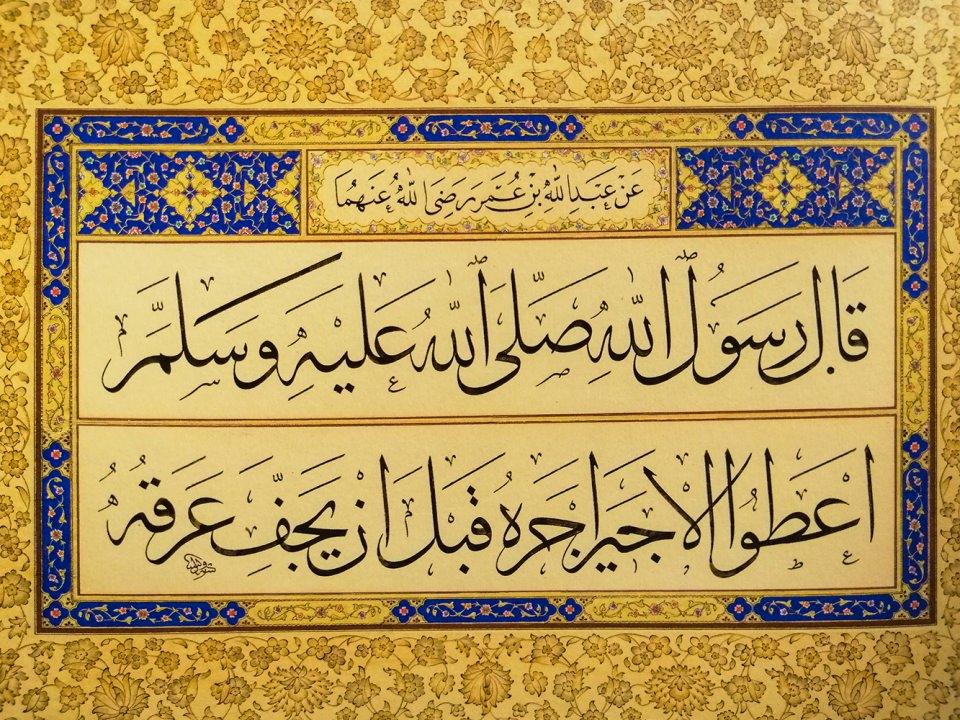 عَنْ عَبْدِ اللهِ بْنِ عُمَرَ رَضَى اللهُ عَنْهُمَا
قَالَ رَسَوُلُ اللهِ صَلَّى اللهُ عَلَيْهِ وَسَلَّمَ
اَعْطُوا الْاَجيرَ اَجْرَهُ قَبْلَ اَنْ يَجِفَّ عَرَقُهُ